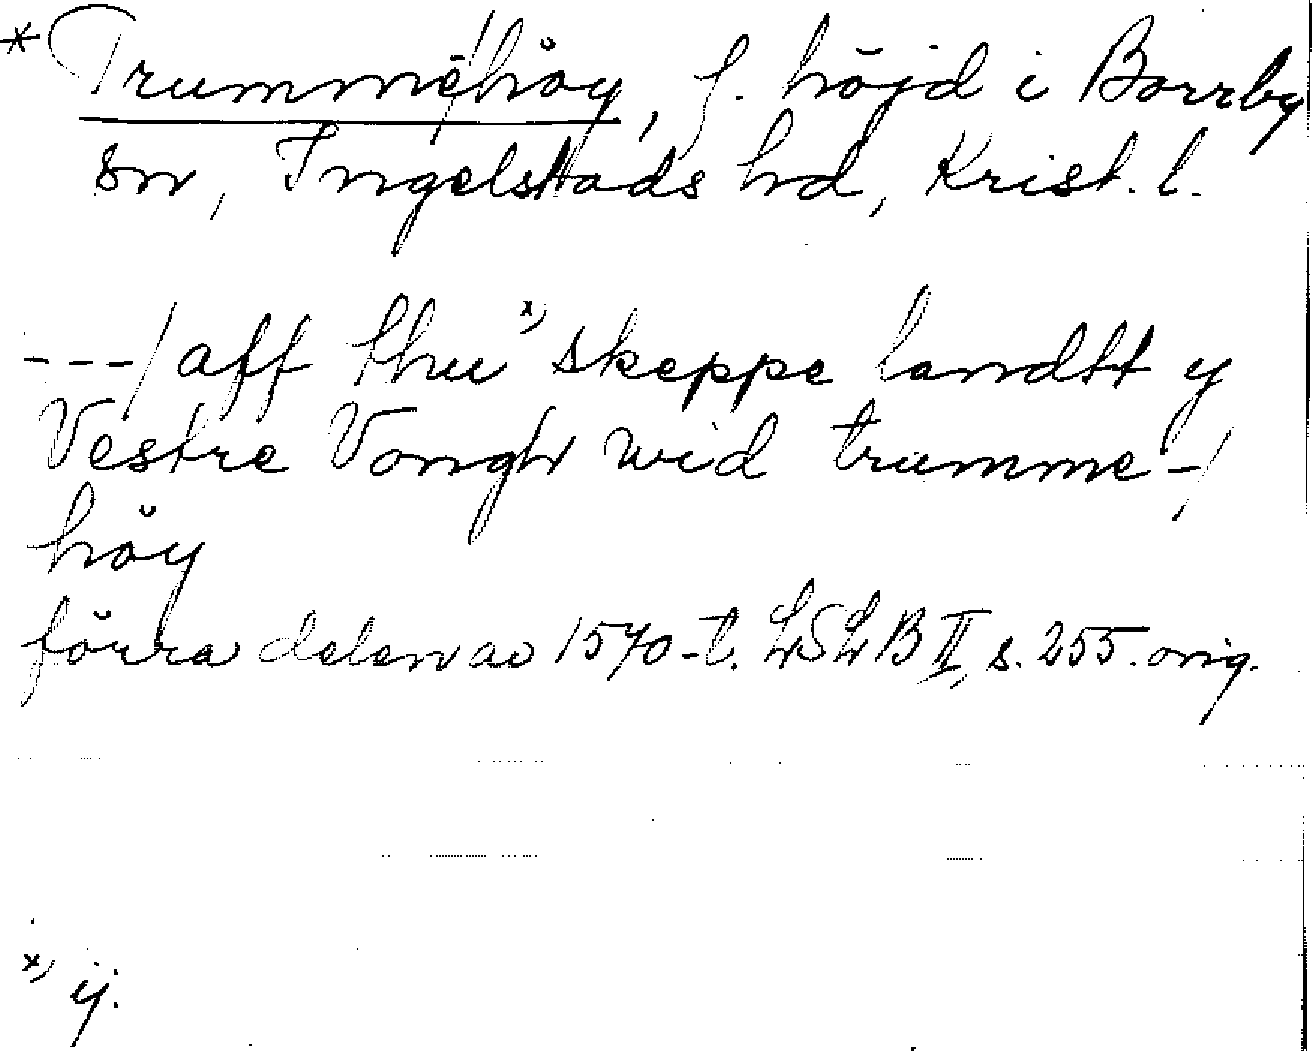 * Trumme/höy, f. höjd i Borrby
sn, Ingelstads hd, Krist. l.
---/ aff thu x) skeppe landtt y
Vestre Vongh wid trumme-/
höy
förra delen av 1570-t. LSLB II, s. 255. orig.
x) ij.